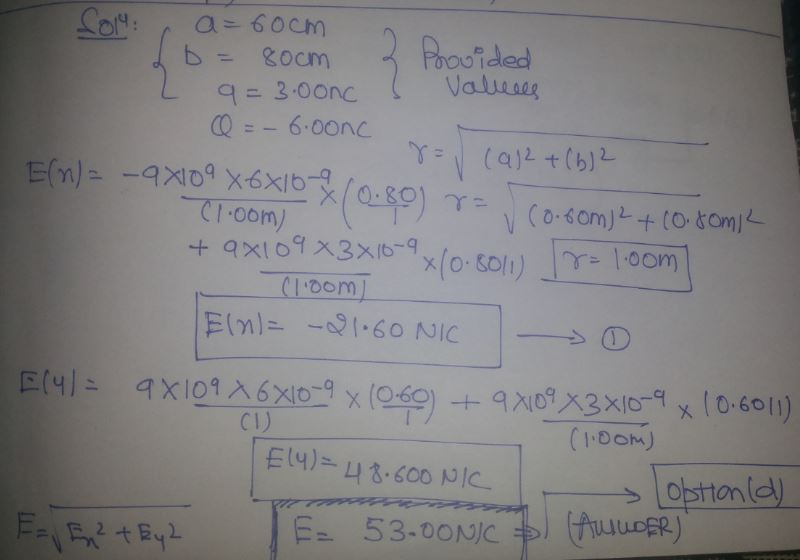 Solⁿ: a = 60cm
b = 80cm
q = 3.00nc
Q = - 6.00nc
Provided
Values
r = √(a)² + (b)²
E(x) = -9×10⁹ × 6×10⁻⁹ / (1.00m) × (0.80/1)
r = √(0.60m)² + (0.80m)²
+ 9×10⁹ × 3×10⁻⁹ / (1.00m) × (0.80/1)
r = 1.00m
E(x) = -21.60 N/C → ①
E(y) = 9×10⁹ × 6×10⁻⁹ / (1) × (0.60/1) + 9×10⁹ × 3×10⁻⁹ / (1.00m) × (0.60/1)
E(y) = 48.600 N/C
option(d)
E = √Ex² + Ey²
E = 53.00N/C ⇒ (ANSWER)